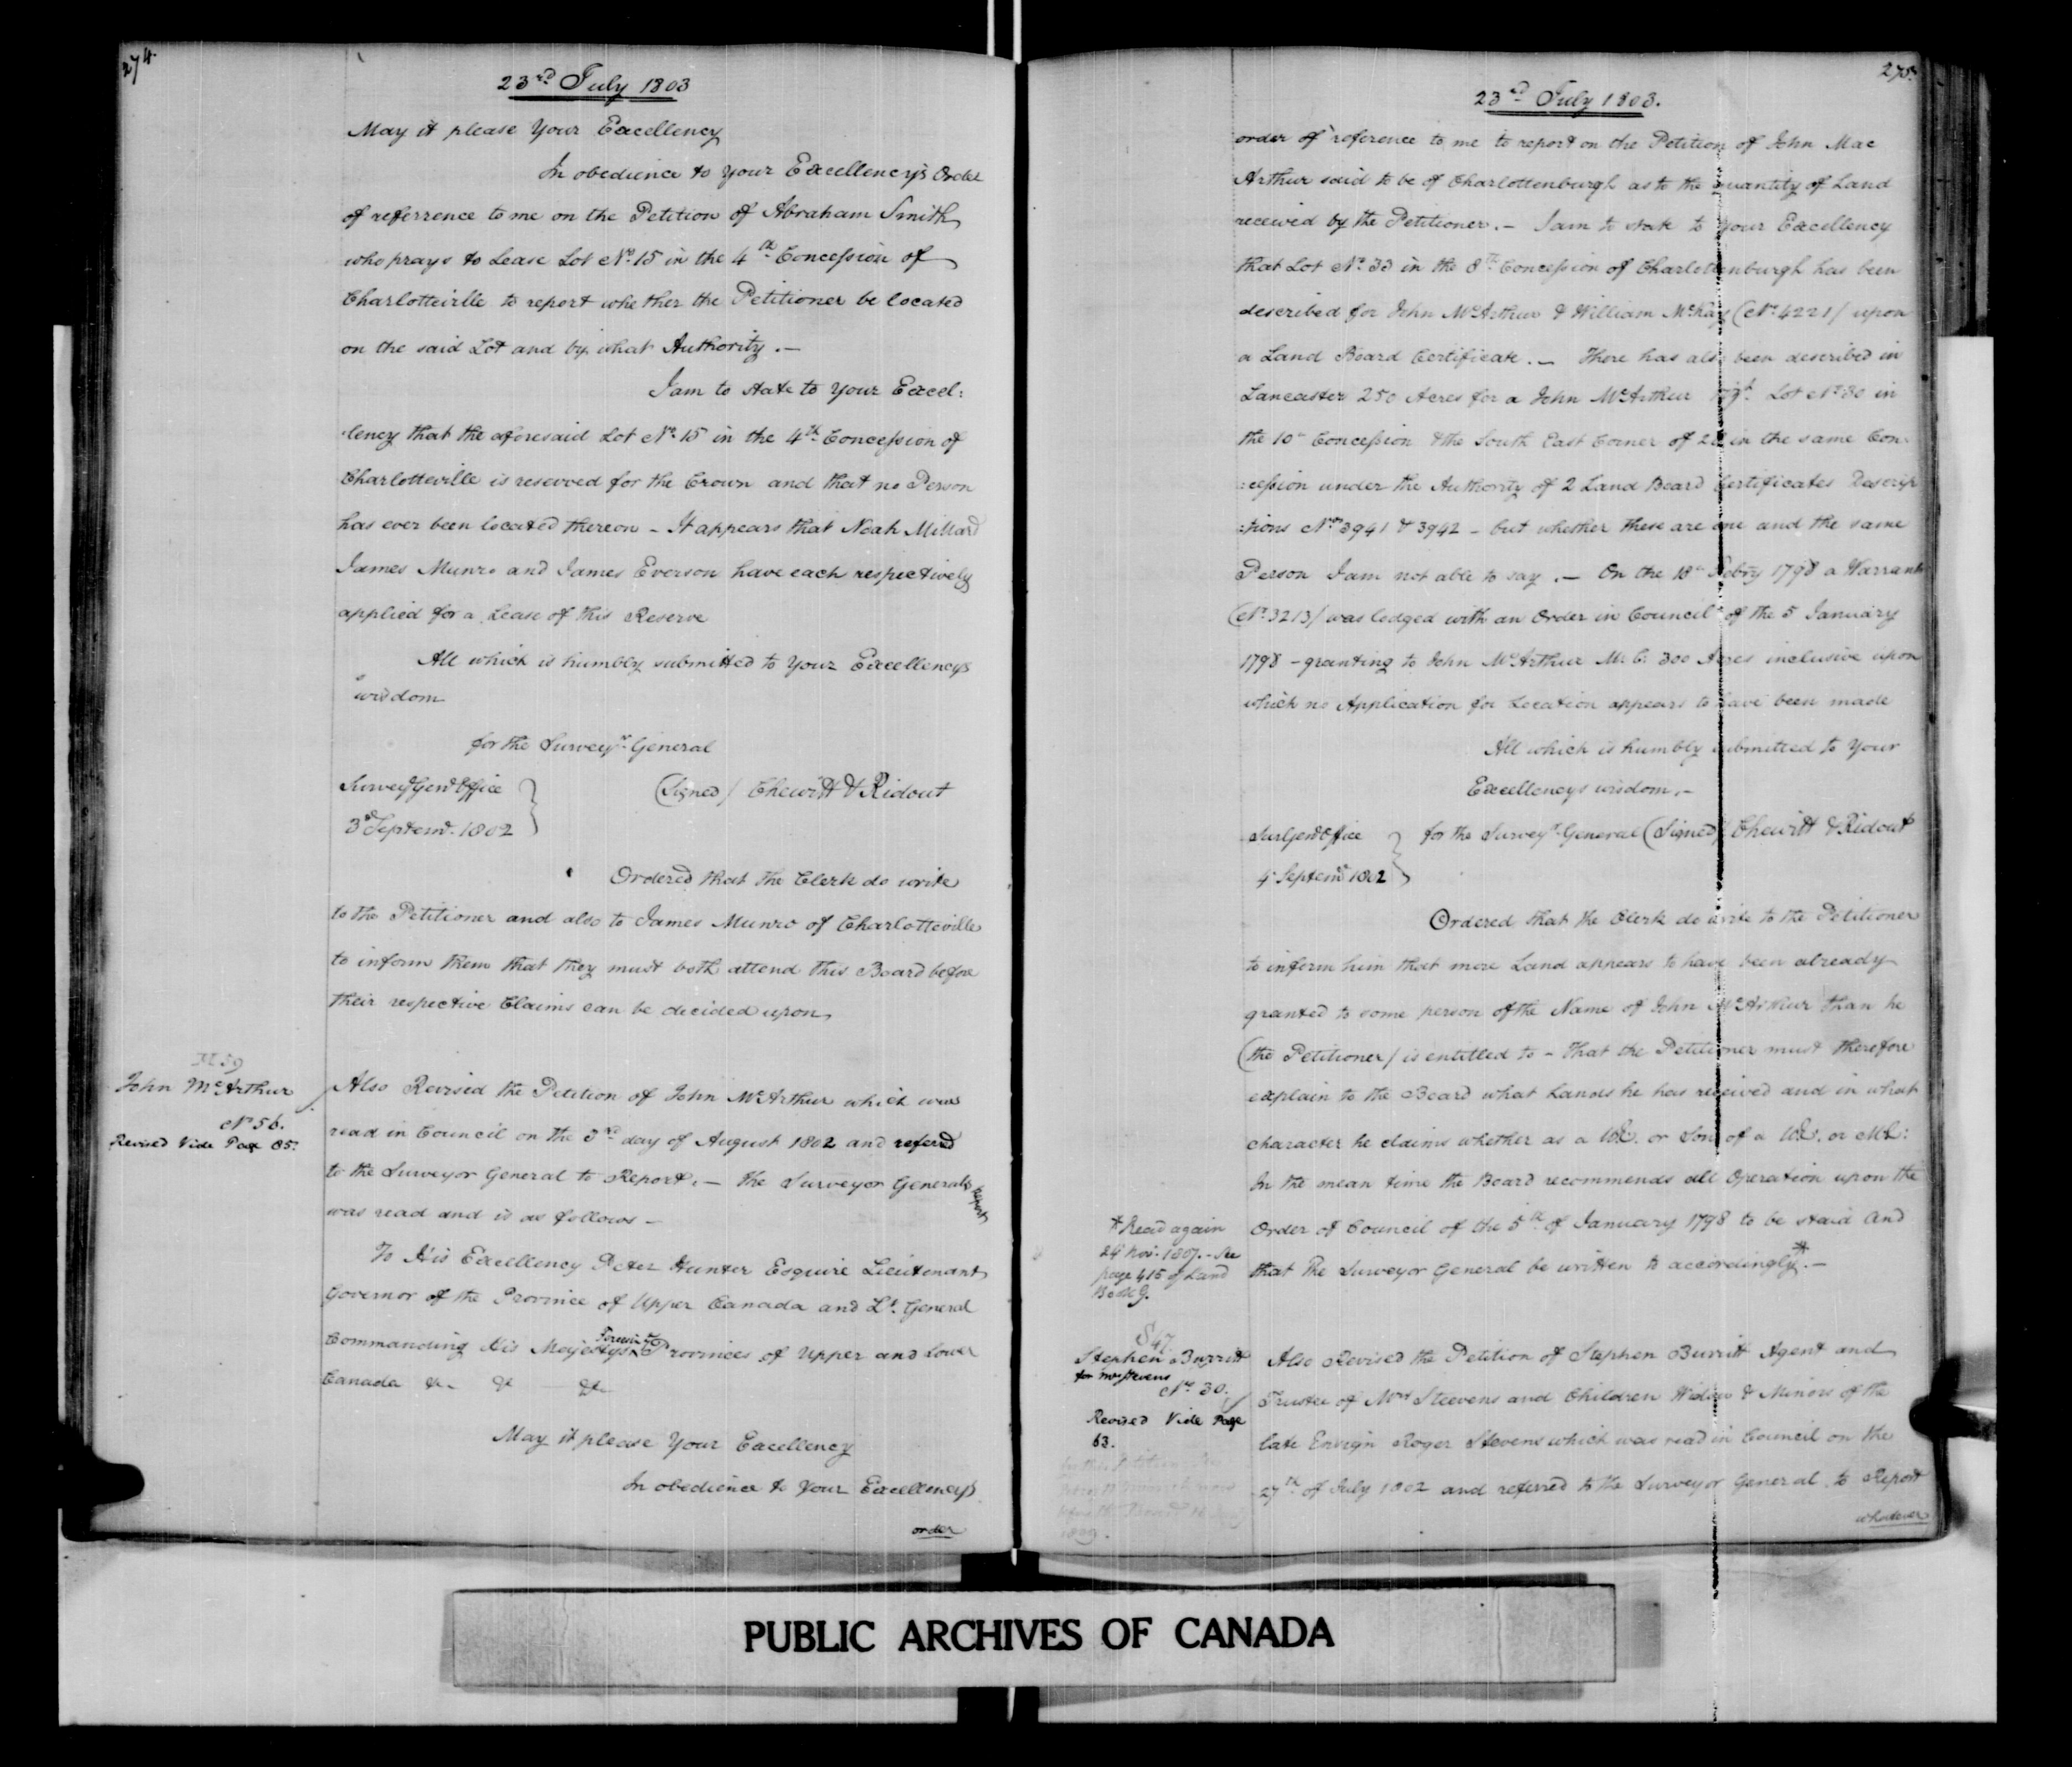 274.
23rd July 1803
May it please Your Excellency
In obedience to your Excellency's Order
of referrence to me on the Petition of Abraham Smith
who prays to Lease Lot No. 15 in the 4th Concession of
Charlotteville to report whether the Petitioner be located
on the said Lot and by what Authority.—
I am to state to Your Excel:
:lency that the aforesaid Lot No. 15 in the 4th Concession of
Charlotteville is reserved for the Crown and that no Person
has ever been located thereon – It appears that Noah Millard
James Munro and James Everson have each respectively
applied for a Lease of this Reserve
All which is humbly submitted to Your Excellencys
wisdom
for the Surveyr. General
Surveyr Genl Office
3d Septemr. 1802
(Signed) Chewitt & Ridout
Ordered that the Clerk do write
to the Petitioner and also to James Munro of Charlotteville
to inform them that they must both attend this Board before
their respective Claims can be decided upon
M 59
John McArthur
No 56.
Revised Vide Page 85.
Also Revised the Petition of John McArthur which was
read in Council on the 3rd day of August 1802 and referred
to the Surveyor General to Report.— The Surveyor Generals Report
was read and is as follows –
To His Excellency Peter Hunter Esquire Lieutenant
Governor of the Province of Upper Canada and Lt. General
Commanding His Majestys Forces in the Provinces of Upper and Lower
Canada &c &c &c
May it please Your Excellency
In obedience to Your Excellencys
order
275.
23rd July 1803.
order of reference to me to report on the Petition of John Mac
Arthur said to be of Charlottenburgh as to the quantity of Land
received by the Petitioner.– I am to state to your Excellency
that Lot No. 33 in the 8th Concession of Charlottenburgh has been
described for John McArthur & William McKay (No. 4221) upon
a Land Board Certificate.– There has also been described in
Lancaster 250 Acres for a John McArthur Lot No. 30 in
the 10th Concession & the South East Corner of in the same Con:
:cession under the Authority of 2 Land Board Certificates Descrip
:tions Nos 3941 & 3942 – but whether these are one and the same
Person I am not able to say.– On the 18th Febry 1798 a Warrant
(No. 3213) was lodged with an Order in Council of the 5 January
1798 – granting to John McArthur M. C. 300 Acres inclusive upon
which no Application for Location appears to have been made
All which is humbly submitted to Your
Excellencys wisdom.–
Sur Genl Office
4 Septemr 1802
for the Surveyr. General (Signed) Chewitt & Ridout
Ordered that the Clerk do write to the Petitioner
to inform him that more Land appears to have been already
granted to some person of the Name of John McArthur than he
(the Petitioner) is entitled to – That the Petitioner must therefore
explain to the Board what Lands he has received and in what
character he claims whether as a UE. or Son of a UE. or ML:
In the mean time the Board recommends all Operation upon the
Order of Council of the 5th of January 1798 to be staid and
that the Surveyor General be written to accordingly*.–
*Read again
24 Nov. 1807.– See
page 415 of Land
Book G.
S 47
Stephen Burritt
for Mrs Stevens
No. 30.
Revised Vide Page
63.
Also Revised the Petition of Stephen Burritt Agent and
Trustee of Mrs Steevens and Children Widow & Minors of the
late Ensign Roger Stevens which was read in Council on the
27th of July 1802 and referred to the Surveyor General to Report
whether
PUBLIC ARCHIVES OF CANADA